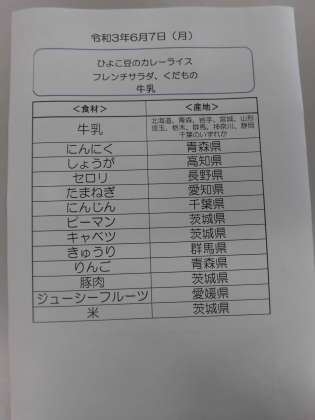 令和3年6月7日（月）
ひよこ豆のカレーライス
フレンチサラダ、くだもの
牛乳
＜食材＞ ＜産地＞
牛乳 北海道、青森、岩手、宮城、山形
埼玉、栃木、群馬、神奈川、静岡
千葉のいずれか
にんにく 青森県
しょうが 高知県
セロリ 長野県
たまねぎ 愛知県
にんじん 千葉県
ピーマン 茨城県
キャベツ 茨城県
きゅうり 群馬県
りんご 青森県
豚肉 茨城県
ジューシーフルーツ 愛媛県
米 茨城県